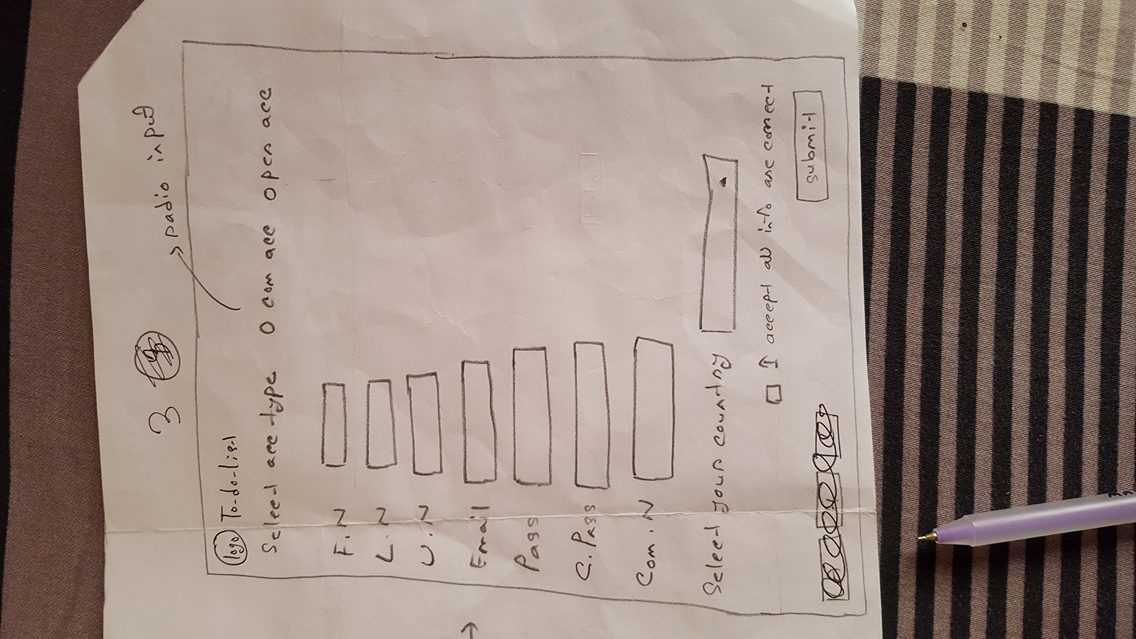 3
radio input
logo To-do-list
Select acc type O com acc O pen acc
F.N
L.N
U.N
Email
Pass
C.Pass
Com.N
Select your country
I accept all info are correct
submit